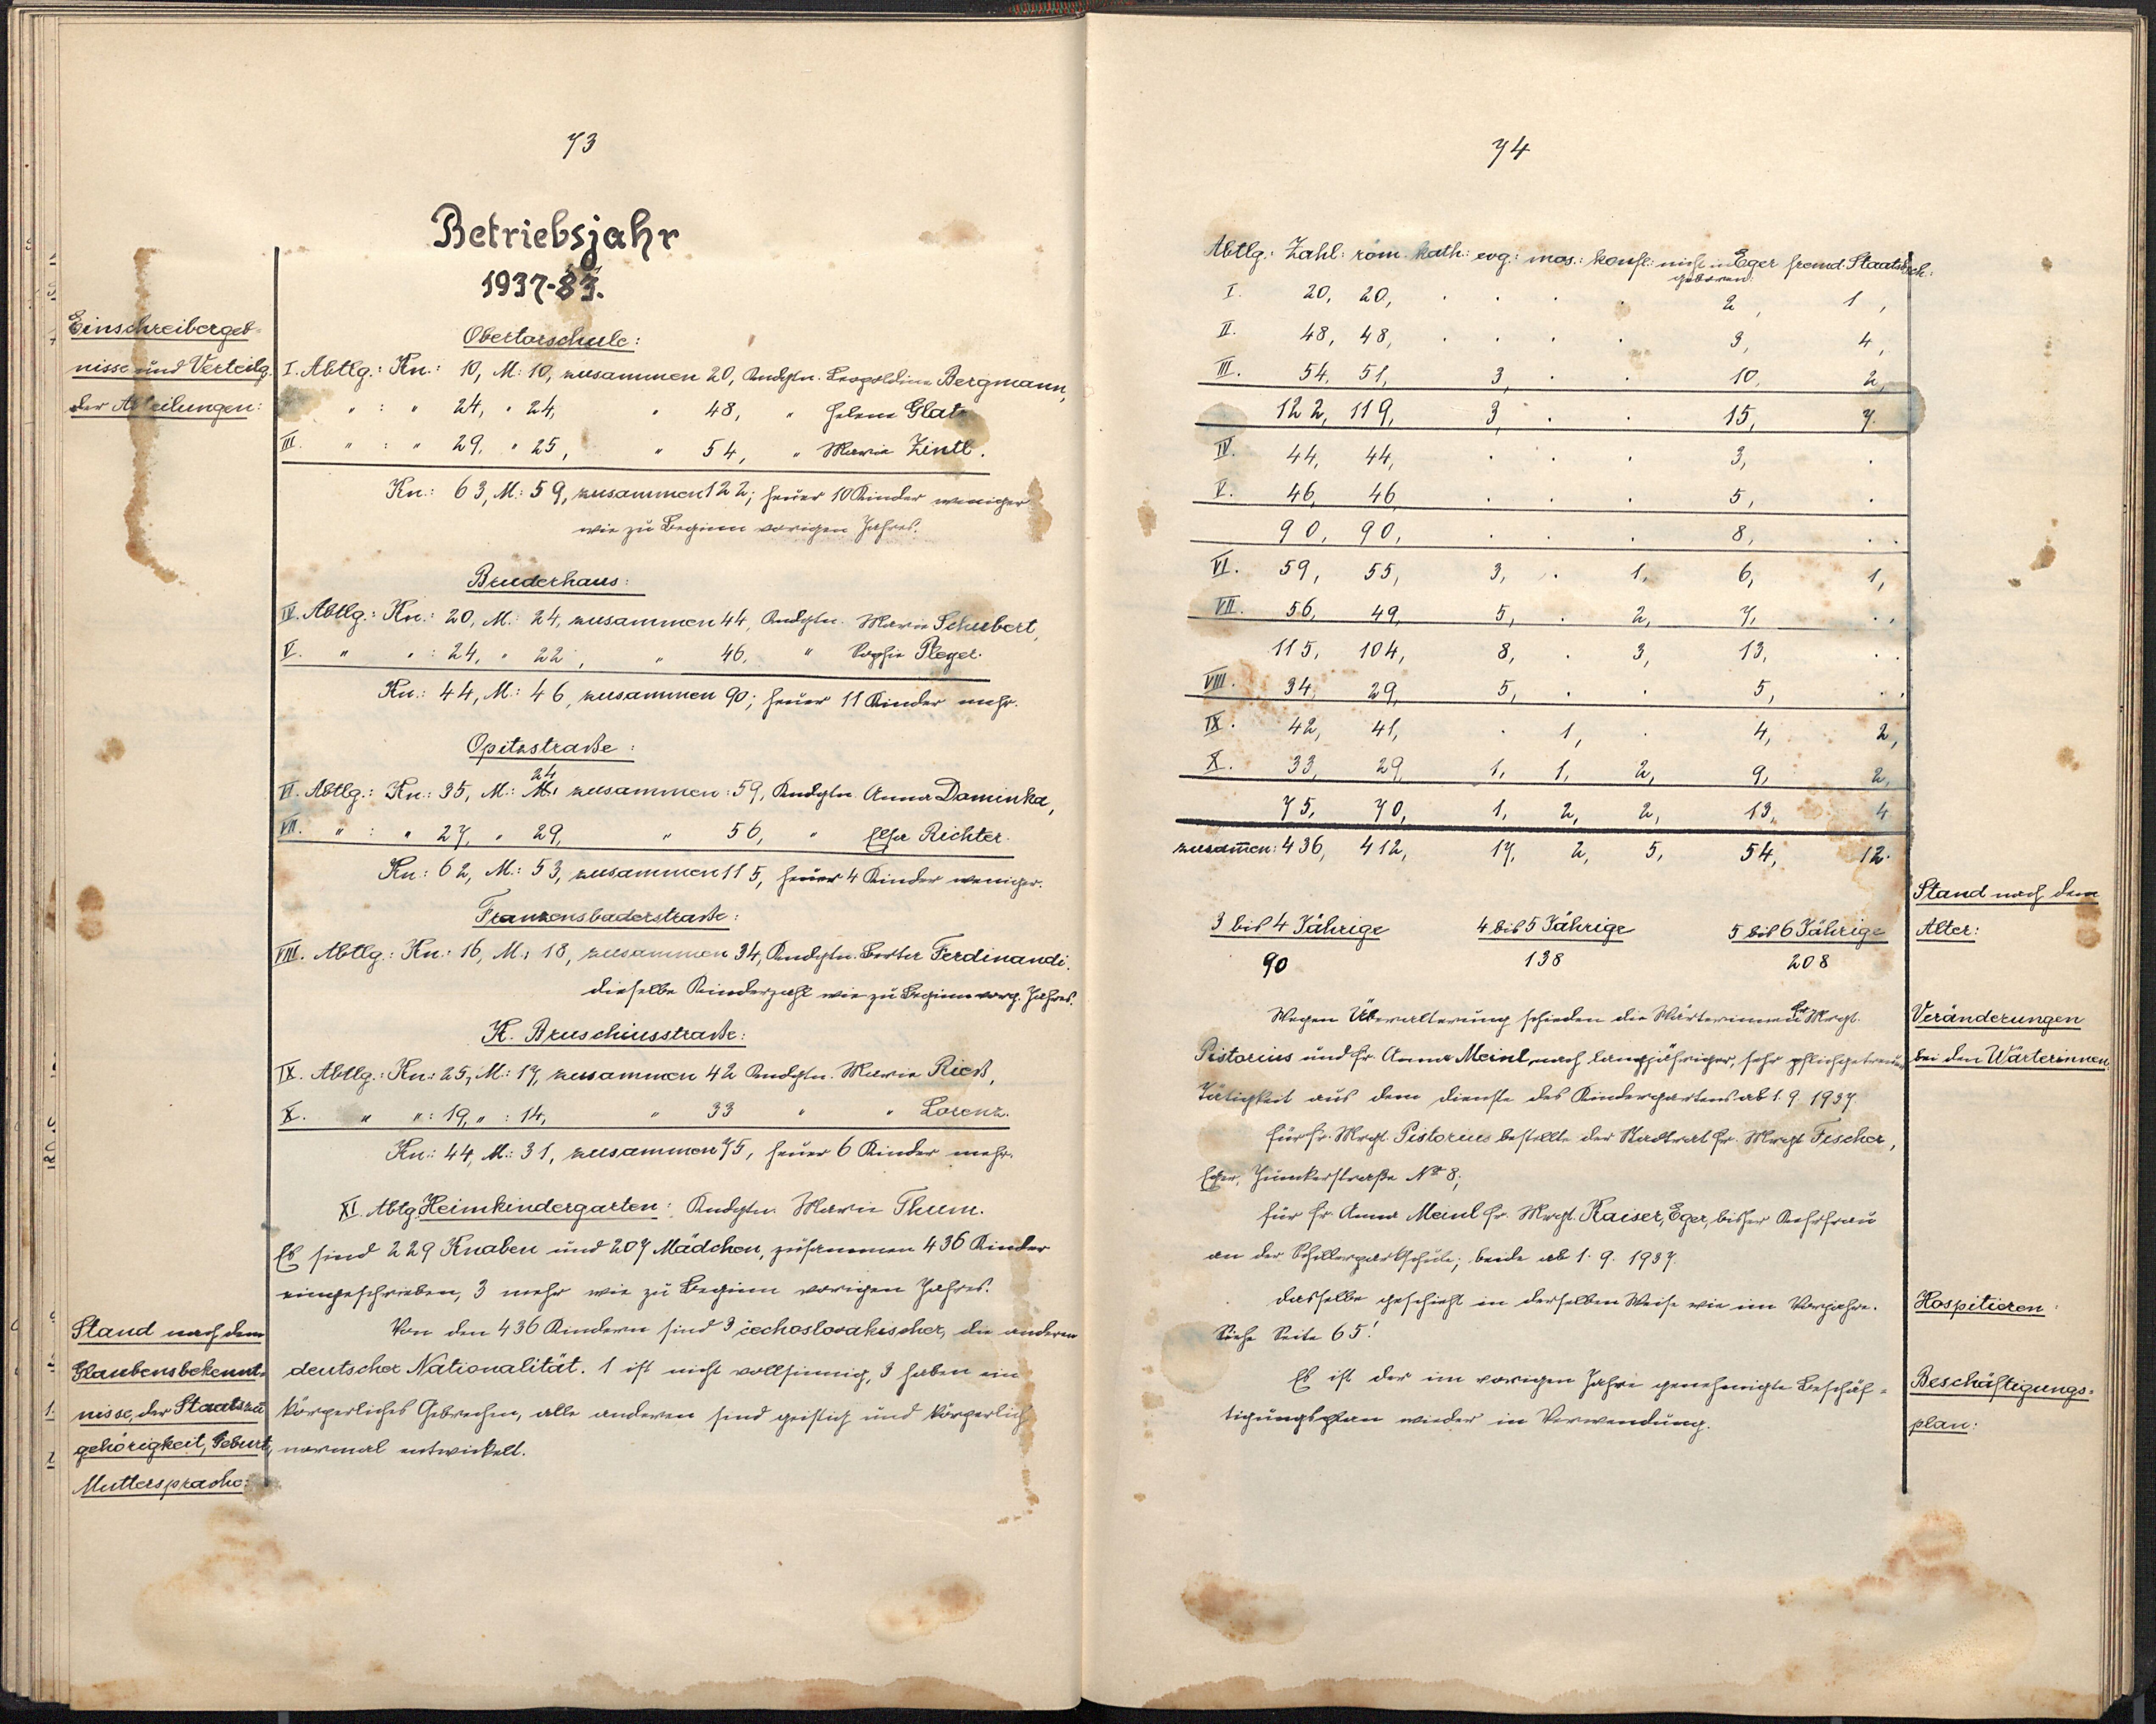 73
Betriebsjahr
1937-83.
Einschreibergeb-
nisse und Verteilg.
der Abteilungen:
Obertorschule:
I. Abtlg.: Kn.: 10, M: 10, zusammen 20, Kndgtn. Leopoldine Bergmann,
" : " 24, " 24, " 48, " Helene Glatz
III. " : " 29, " 25, " 54, " Marie Zintl.
Kn.: 63, M.: 59, zusammen 122; heuer 10 Kinder weniger
wie zu Beginn vorigen Jahres.
Bruderhaus:
IV. Abtlg.: Kn.: 20, M.: 24, zusammen 44, Kndgtn. Marie Schubert,
V. " " : 24, " 22, " 46, " Sophie Plegel.
Kn.: 44, M.: 46, zusammen 90; heuer 11 Kinder mehr.
Opitzstraße:
VI. Abtlg.: Kn.: 35, M.: 24 zusammen: 59, Kndgtn. Anna Daminka,
VII. " : " 27, " 29, " 56, " Elsa Richter.
Kn.: 62, M.: 53, zusammen 115, heuer 4 Kinder weniger.
Franzensbaderstraße:
VIII. Abtlg.: Kn.: 16, M.: 18, zusammen 34, Kndgtn. Berta Ferdinandi.
dieselbe Kinderzahl wie zu Beginn vorg. Jahres.
K. Bruschiusstraße:
IX. Abtlg.: Kn.: 25, M.: 17, zusammen 42 Kndgtn. Marie Rieß,
X. " " : 19, " : 14, " 33 " " Lorenz.
Kn.: 44, M.: 31, zusammen 75, heuer 6 Kinder mehr.
XI. Abtg. Heimkindergarten: Kndgtn. Marie Thum.
Es sind 229 Knaben und 207 Mädchen, zusammen 436 Kinder
eingeschrieben, 3 mehr wie zu Beginn vorigen Jahres.
Stand nach dem
Glaubensbekennt-
nisse, der Staatszu
gehörigkeit, Geburt,
Muttersprache:
Von den 436 Kindern sind 3 čechoslovakischer, die anderen
deutscher Nationalität. 1 ist nicht vollsinnig, 3 haben ein
körperliches Gebrechen, alle anderen sind geistig und körperlich
normal entwickelt.
74
Abtlg.: Zahl: röm. kath: evg: mos.: konfl: nicht in Eger geboren: fremd. Staatsbch:
I. 20, 20, . . . . 2, 1,
II. 48, 48, . . . . 3, 4,
III. 54, 51, 3, . . 10, 2,
122, 119, 3, . . 15, 7.
IV. 44, 44, . . . 3, .
V. 46, 46, . . . 5, .
90, 90, . . . 8, . .
VI. 59, 55, 3, . 1, 6, 1,
VII. 56, 49, 5, . 2, 7, . .
115, 104, 8, . 3, 13, . .
VIII. 34, 29, 5, . . 5, . .
IX. 42, 41, . 1, . 4, 2,
X. 33, 29, 1, 1, 2, 9, 2,
75, 70, 1, 2, 2, 13, 4
zusamen: 436, 412, 17, 2, 5, 54, 12.
Stand nach dem
Alter:
3 bis 4 Jährige 4 bis 5 Jährige 5 bis 6 Jährige
90 138 208
Veränderungen
bei den Wärterinnen
Wegen Überalterung schieden die Wärterinnen Fr. Mrgt.
Pistorius und Fr. Anna Meinl, nach langjähriger, sehr pflichtgetreuer
Tätigkeit aus dem Dienste des Kindergartens ab 1. 9. 1937.
Für Fr. Mrgt. Pistorius bestellte der Stadtrat Fr. Mrgt Fischer,
Eger, Junkerstraße No 8;
für Fr. Anna Meinl Fr. Mrgt. Kaiser, Eger, bisher Kehrfrau
an der Schillerparkschule; beide ab 1. 9. 1937.
Hospitieren:
Dasselbe geschieht in derselben Weise wie im Vorjahre.
Siehe Seite 65!
Beschäftigungs-
plan:
Es ist der im vorigen Jahre genehmigte Beschäf-
tigungsplan wieder in Verwendung.